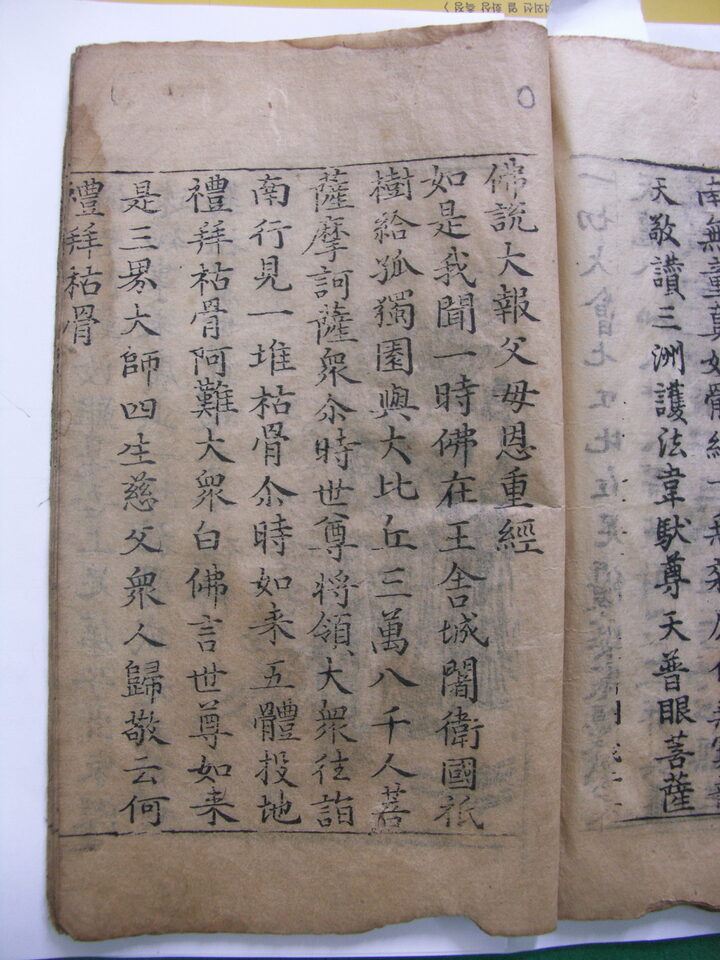 天敬讚三洲護法韋馱尊天普眼菩薩
佛說大報父母恩重經
如是我聞一時佛在王舍城闍衛國祇
樹給孤獨園與大比丘三萬八千人菩
薩摩訶薩衆尒時世尊將領大衆往詣
南行見一堆枯骨尒時如来五體投地
禮拜枯骨阿難大衆白佛言世尊如来
是三界大師四生慈父衆人歸敬云何
禮拜枯骨